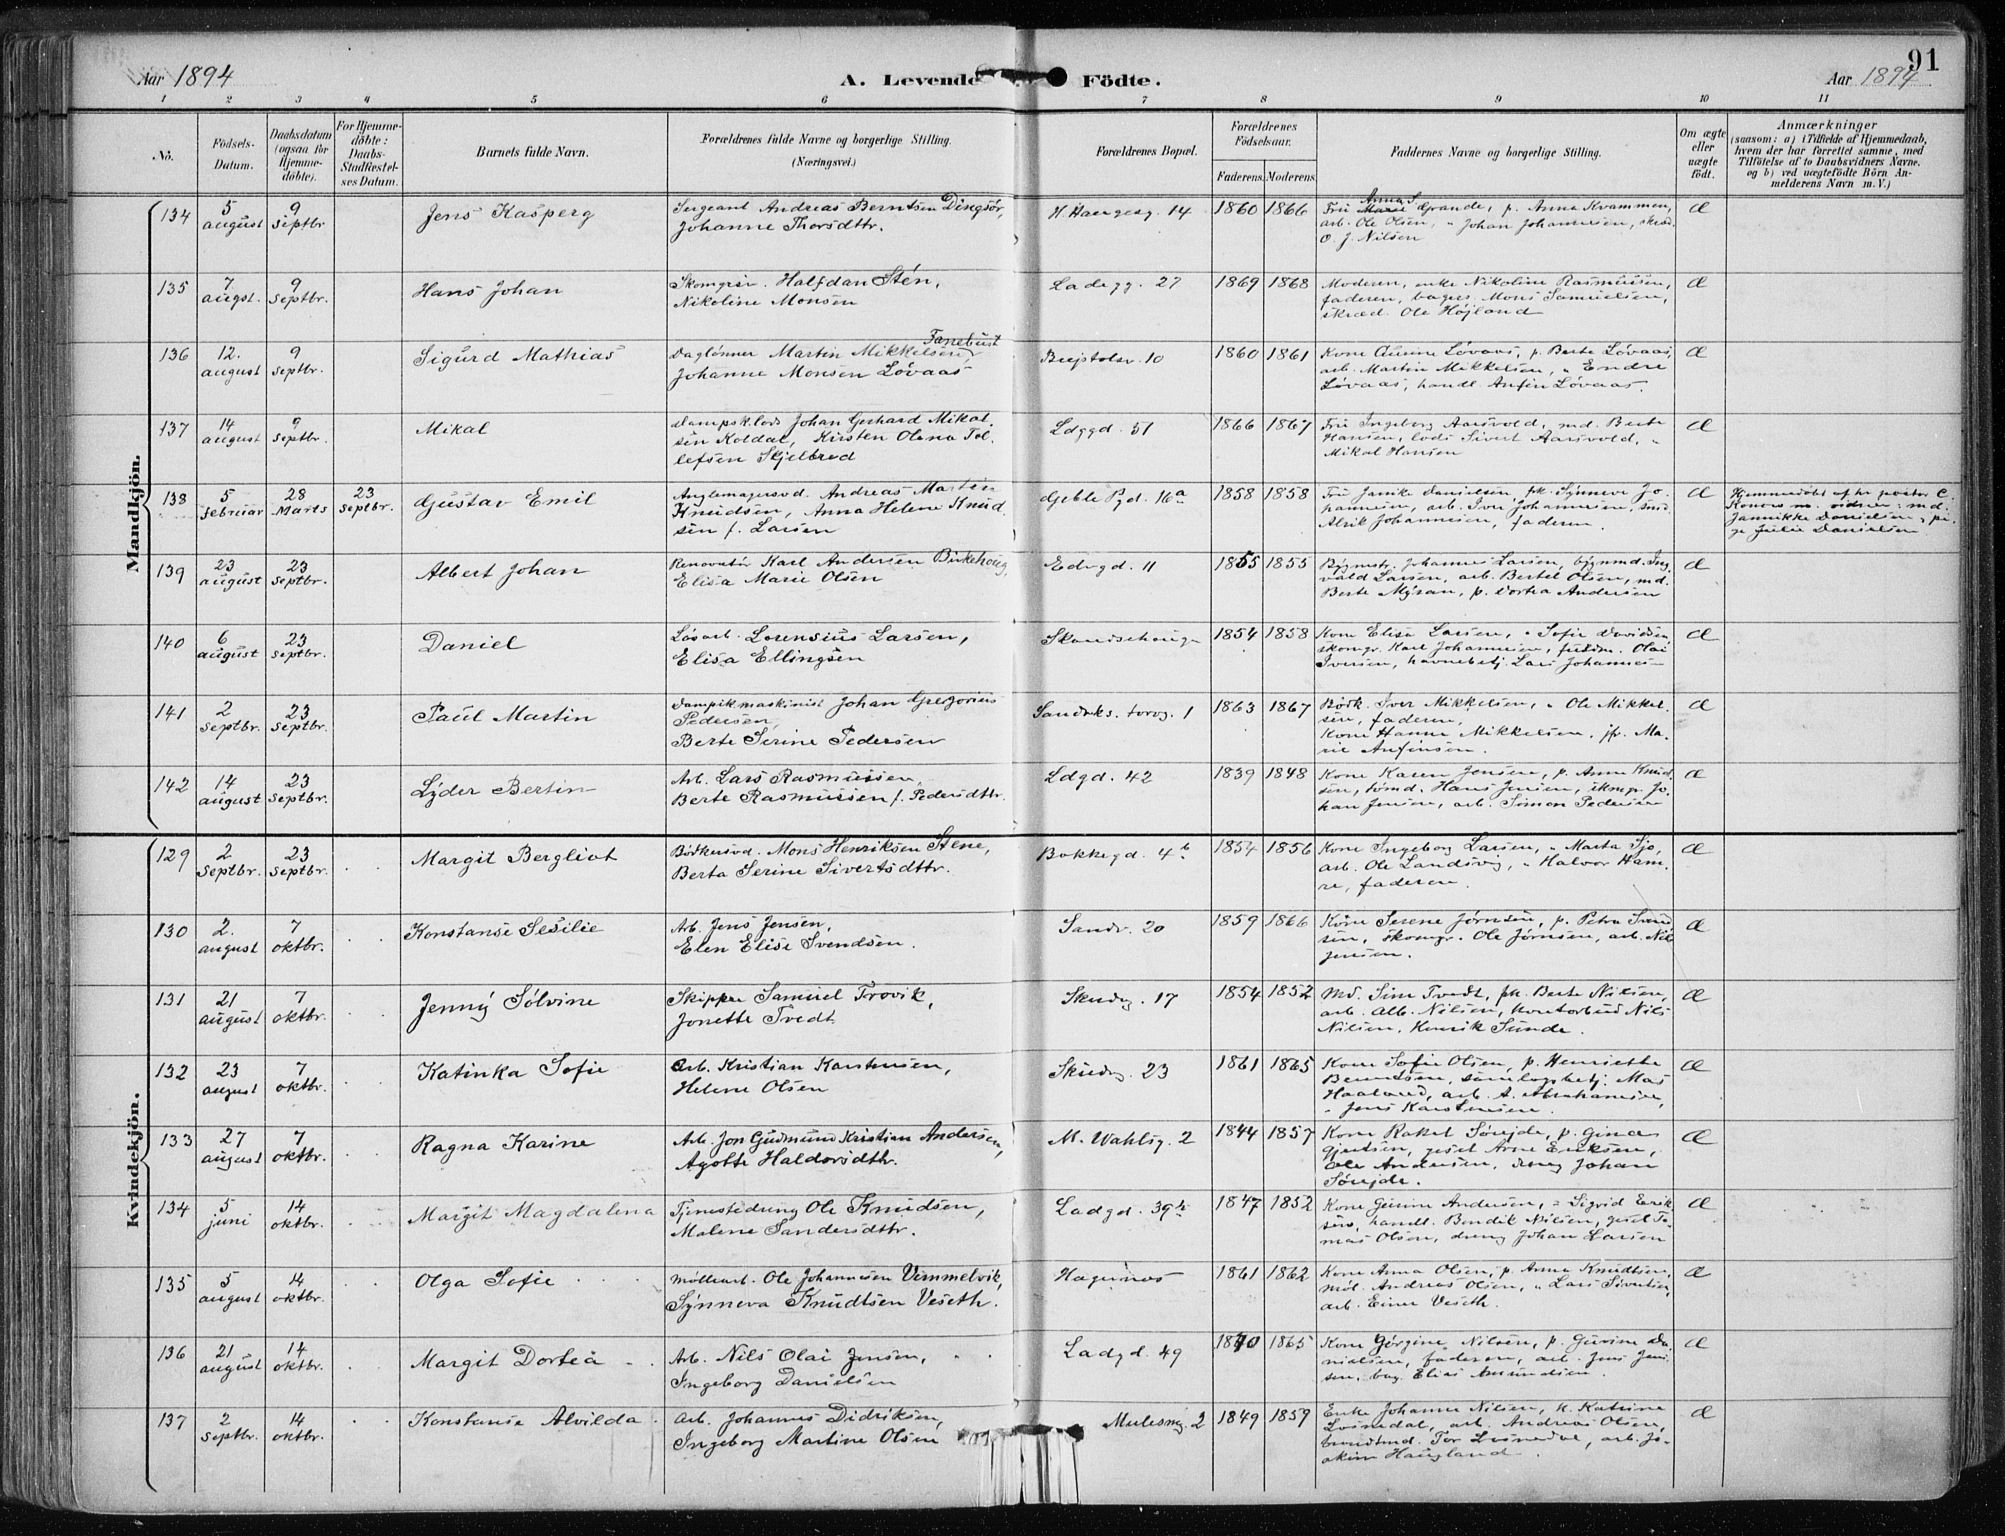 91
Aar 1894
A. Levende Födte.
Aar 1894
1 2 3 4 5 6 7 8 9 10 11
No.
Födsels-Datum.
Daabsdatum (ogsaa for Hjemmedöbte).
For Hjemmedöbte: Daabs-Stadfæstelses Datum.
Barnets fulde Navn.
Forældrenes fulde Navne og borgerlige Stilling. (Næringsvei.)
Forældrenes Bopæl.
Forældrenes Födselsaar.
Faderens. Moderens.
Faddernes Navne og borgerlige Stilling.
Om ægte eller uægte födt.
Anmærkninger
(saasom: a) i Tilfælde af Hjemmedaab, hvem der har forrettet samme, med Tilföielse af to Daabsvidners Navne. og b) ved uægtefödte Börn Anmelderens Navn m. V.)
Mandkjön.
134 5 august 9 septbr Jens Kasperg
Sergeant Andreas Berntsen Dingsör,
Johanne Thorsdttr.
H. Haugesg. 14 1860 1866
Fru Anna S. Grande, p. Anna Kvammen,
arb. Ole Olsen, " Johan Johannesen, skræd.
O. J. Nilsen
Æ
135 7 augst. 9 septbr. Hans Johan
Skomgrsv. Halfdan Stén,
Nikoline Monsen
Ladegg. 27 1869 1868
Moderen, enke Nikoline Rasmussen,
faderen, bagers. Mons Samuelsen,
skræd. Ole Højland
Æ
136 12. august 9 septbr. Sigurd Mathias
Fanebust
Daglønner Martin Mikkelsen
Johanne Monsen Lövaas
10 1860 1861
Kone Lövaas, p. Berte Lövaas,
arb. Martin Mikkelsen, " Endre
Lövaas, handl. Anfin Lövaas.
Æ
137 14 august 9 septbr. Mikal
Dampsk.lods Johan Gerhard Mikal-
sen Koldal, Kirsten Olena Tol-
lefsen Skjelbred
Ldggd. 51 1866 1867
Fru Ingeborg Aarsvold, md. Berte
Hansen, lods Sivert Aarsvold, "
Mikal Hansen
Æ
138 5 februar 28 Marts 23 septbr. Gustav Emil
Andreas Martin
Knudsen, Anna Helene Knud-
sen f. Larsen
Geble Pgd. 16a 1858 1858
Fru Janike Danielsen, pk. Synneve Jo-
hannesen, arb. Iver Johannesen, smd.
Alrik Johannesen, faderen.
Æ
Hjemmedöbt af hr. pastor C.
Konow m. vidner: md.
Jannikke Danielsen, pi-
ge Julie Danielsen
139 23 august 23 septbr. Albert Johan
Renovatör Karl Andersen Birkehoug,
Elisa Marie Olsen
Edvgd. 11 1855 1855
Bygmstr. Johannes Larsen, bygnmd. Ing-
vald Larsen, arb. Bertel Olsen, md.
Berte Mýran, p. Dortea Andersen
Æ
140 6 august 23 septbr. Daniel
Løsarb. Lorensius Larsen,
Elisa Ellingsen
1854 1858
Kone Elisa Larsen, " Sofie Davidsen,
skomgr. Karl Johannesen, Olai
Iversen, havnebetj. Lars Johannes-
Æ
141 2 septbr. 23 septbr. Paul Martin
Dampsk.maskinist Johan Gregorius
Pedersen,
Berte Serine Pedersen
Sandvks. torvg. 1 1863 1867
Bødk. Iver Mikkelsen, " Ole Mikkel-
sen, faderen,
Kone Hanne Mikkelsen, jfr. Ma-
rie Anfinsen.
Æ
142 14 august 23 septbr. Lýder Bertin
Arb. Lars Rasmussen,
Berte Rasmussen f. Pedersdttr.
Ldgd. 42 1839 1848
Kone Karen Jensen, p. Anna Knud-
sen, tømd. Hans Jensen, skmgr. Jo-
han Jensen, arb. Simon Pedersen
Æ
Kvindekjön.
129 2 Septbr. 23 Septbr. Margit Bergliot
Bödkersvd. Mons Henriksen Stene,
Berta Serine Sivertsdttr.
Bakkegd. 4b 1854 1856
Kone Ingeborg Larsen, " Marta Sjo,
arb. Ole Landsvig, " Halvor Ham-
re, faderen.
Æ
130 2. august 7 oktbr. Konstanse Sesilie
Arb. Jens Jensen,
Elen Elise Svendsen.
Sandv. 20 1859 1866
Kone Serene Jørnsen, p. Petra Svend-
sen, skomgr. Ole Jørnsen, arb. Nils
Jensen.
Æ
131 21 august 7 oktbr. Jenný Sölvine
Skipper Samuel Trovik,
Jonette Tvedt
Skudvg. 17 1854 1852
Md. Sine Tvedt, pk. Berte Nilsen,
arb. Alb. Nilsen, kontorbud Nils
Nilsen, Henrik Sunde.
Æ
132 23 august 7 oktbr. Katinka Sofie
Arb. Kristian Karstensen,
Helene Olsen
Skudvg. 23 1861 1865
Kone Sofie Olsen, p. Henriette
Berentsen, Mas
Haaland, arb. A. Abrahamsen,
" Jens Karstensen.
Æ
133 27 august 7 oktbr. Ragna Karine
Arb. Jon Gudmund Kristian Andersen,
Agotte Haldorsdttr.
M. Wahlsg. 2 1844 1857
Kone Rakel Sørejde, p. Gina
Gjertsen, gesel Arne Eriksen,
Ole Andersen, dreng Johan
Sørejde.
Æ
134 5 juni 14 oktbr. Margit Magdalena
Tjenestedreng Ole Knudsen,
Malene Sandersdttr.
Ladgd. 39b 1847 1852
Kone Gurine Andersen, " Sigrid Erik-
sen, handl. Bendik Nilsen, gesel To-
mas Olsen, dreng Johan Larsen
Æ
135 5 august 14 oktbr. Olga Sofie
Møllearb. Ole Johannesen Vemmelvik,
Sýnneva Knudtsen Veseth.
Hagernæs 1861 1862
Kone Anna Olsen, p. Anna Knudtsen,
møl. Andreas Olsen, " Lars Sivertsen,
arb. Einer Veseth.
Æ
136 21 august 14 oktbr. Margit Dortea
Arb. Nils Olai Jensen,
Ingeborg Danielsen
Ladgd. 49 1870 1865
Kone Görgine Nilsen, p. Gurine Da-
nielsen, faderen, arb. Jens Jen-
sen, bag. Elias Amundsen.
Æ
137 2 septbr. 14 oktbr. Konstanse Alvilda
Arb. Johannes Didriksen,
Ingeborg Martine Olsen
Mulesmg 2 1849 1859
Enke Johanne Nilsen, k. Katrine
Lonedal, arb. Andreas Olsen,
Tor Lonedal, arb. Jo-
akim Haugland.
Æ